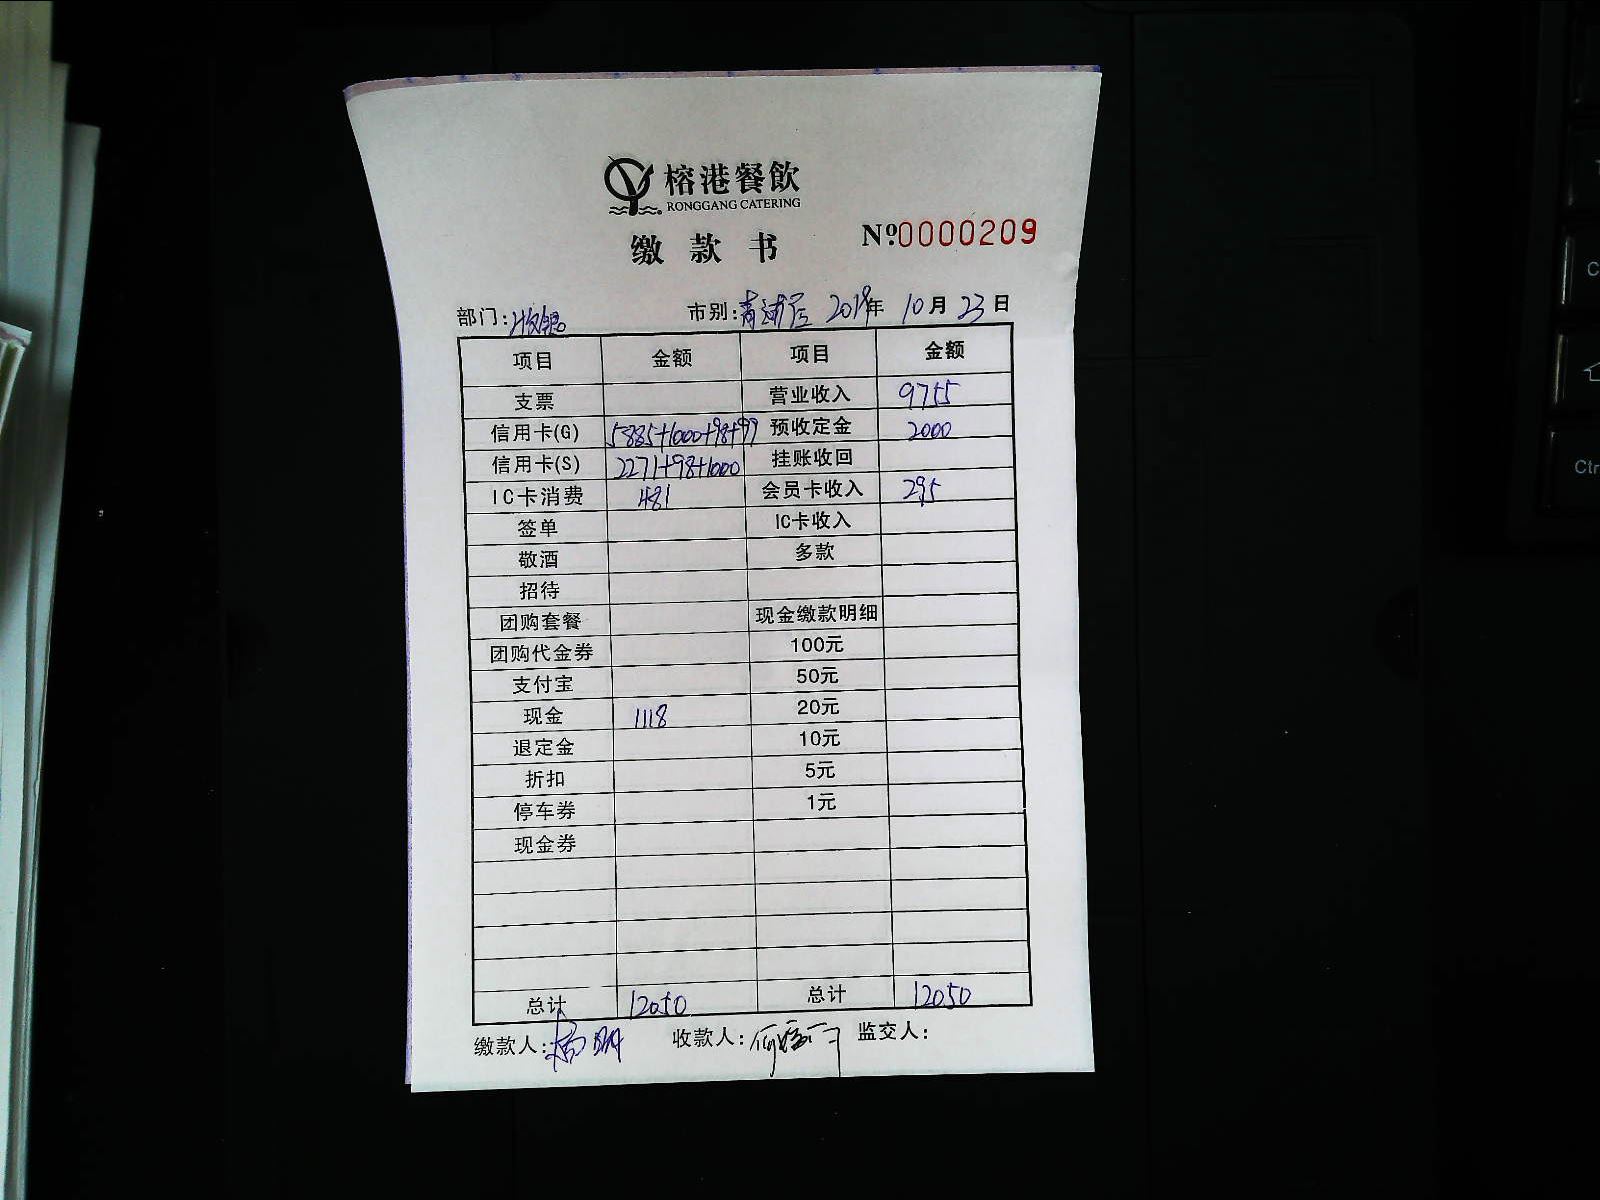 榕港餐飲
RONGGANG CATERING
缴款书 №0000209
部门:收银 市别:青浦店 2019年 10月 23日
项目 金额 项目 金额
支票 营业收入 9755
信用卡(G) 5885+1000+98+99 预收定金 2000
信用卡(S) 2271+98+1000 挂账收回
IC卡消费 481 会员卡收入 295
签单 IC卡收入
敬酒 多款
招待
团购套餐 现金缴款明细
团购代金券 100元
支付宝 50元
现金 1118 20元
退定金 10元
折扣 5元
停车券 1元
现金券
总计 12050 总计 12050
缴款人: 收款人: 监交人:
C
Ctr